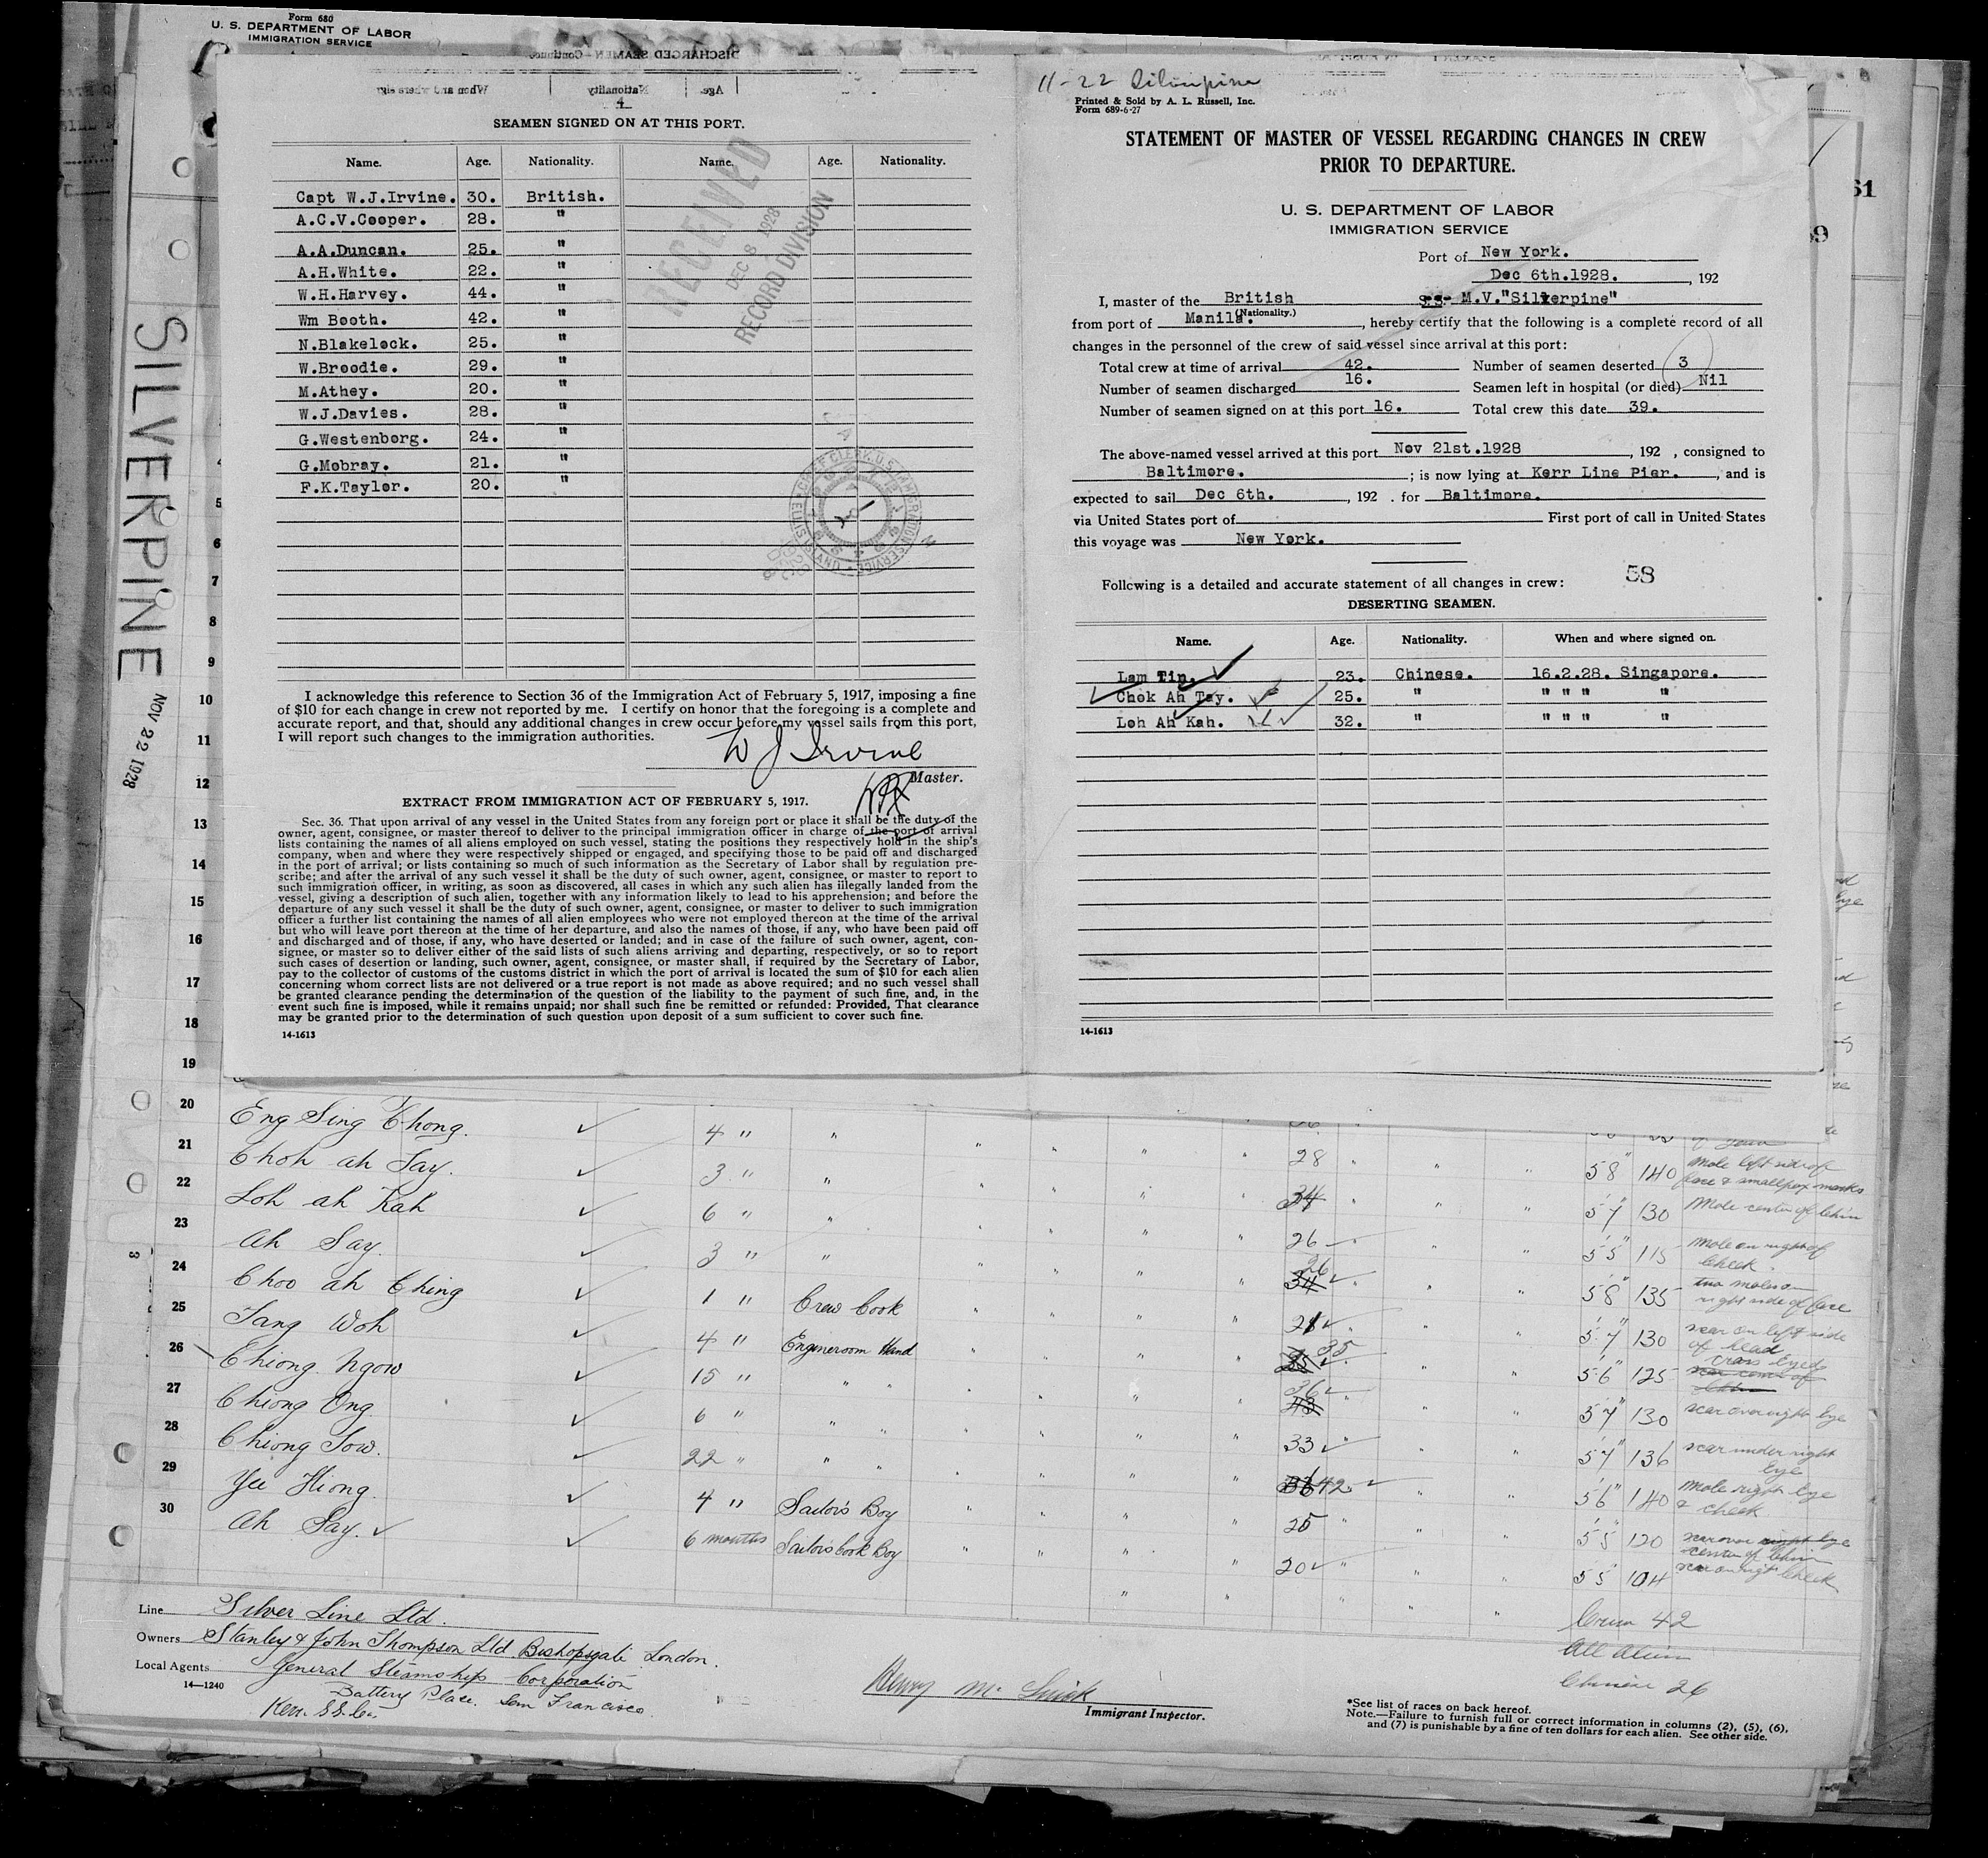 Form 680
U. S. DEPARTMENT OF LABOR
IMMIGRATION SERVICE
DISCHARGED SEAMEN—Continued
When and where sign
Nationality
Age
4
SEAMEN SIGNED ON AT THIS PORT.
Name. Age. Nationality. Name. Age. Nationality.
Capt W.J.Irvine. 30. British.
A.C.V.Cooper. 28. "
A.A.Duncan. 25. "
A.H.White. 22. "
W.H.Harvey. 44. "
Wm Booth. 42. "
N.Blakelock. 25. "
W.Broodie. 29. "
M.Athey. 20. "
W.J.Davies. 28. "
G.Westenborg. 24. "
G.Mobray. 21. "
F.K.Taylor. 20. "
RECEIVED
DEC 8 1928
RECORD DIVISION
I acknowledge this reference to Section 36 of the Immigration Act of February 5, 1917, imposing a fine
of $10 for each change in crew not reported by me. I certify on honor that the foregoing is a complete and
accurate report, and that, should any additional changes in crew occur before my vessel sails from this port,
I will report such changes to the immigration authorities.
W J Irvine
Master.
EXTRACT FROM IMMIGRATION ACT OF FEBRUARY 5, 1917.
Sec. 36. That upon arrival of any vessel in the United States from any foreign port or place it shall be the duty of the
owner, agent, consignee, or master thereof to deliver to the principal immigration officer in charge of the port of arrival
lists containing the names of all aliens employed on such vessel, stating the positions they respectively hold in the ship's
company, when and where they were respectively shipped or engaged, and specifying those to be paid off and discharged
in the port of arrival; or lists containing so much of such information as the Secretary of Labor shall by regulation pre-
scribe; and after the arrival of any such vessel it shall be the duty of such owner, agent, consignee, or master to report to
such immigration officer, in writing, as soon as discovered, all cases in which any such alien has illegally landed from the
vessel, giving a description of such alien, together with any information likely to lead to his apprehension; and before the
departure of any such vessel it shall be the duty of such owner, agent, consignee, or master to deliver to such immigration
officer a further list containing the names of all alien employees who were not employed thereon at the time of the arrival
but who will leave port thereon at the time of her departure, and also the names of those, if any, who have been paid off
and discharged and of those, if any, who have deserted or landed; and in case of the failure of such owner, agent, con-
signee, or master so to deliver either of the said lists of such aliens arriving and departing, respectively, or so to report
such cases of desertion or landing, such owner, agent, consignee, or master shall, if required by the Secretary of Labor,
pay to the collector of customs of the customs district in which the port of arrival is located the sum of $10 for each alien
concerning whom correct lists are not delivered or a true report is not made as above required; and no such vessel shall
be granted clearance pending the determination of the question of the liability to the payment of such fine, and, in the
event such fine is imposed, while it remains unpaid; nor shall such fine be remitted or refunded: Provided, That clearance
may be granted prior to the determination of such question upon deposit of a sum sufficient to cover such fine.
14-1613
11-22 Silverpine
Printed & Sold by A. L. Russell, Inc.
Form 689-6-27
STATEMENT OF MASTER OF VESSEL REGARDING CHANGES IN CREW
PRIOR TO DEPARTURE.
U. S. DEPARTMENT OF LABOR
IMMIGRATION SERVICE
Port of New York.
Dec 6th.1928. , 192
I, master of the British S.S. M.V."Silverpine"
(Nationality.)
from port of Manila. , hereby certify that the following is a complete record of all
changes in the personnel of the crew of said vessel since arrival at this port:
Total crew at time of arrival 42. Number of seamen deserted 3
Number of seamen discharged 16. Seamen left in hospital (or died) Nil
Number of seamen signed on at this port 16. Total crew this date 39.
The above-named vessel arrived at this port Nov 21st.1928 , 192 , consigned to
Baltimore. ; is now lying at Kerr Line Pier. , and is
expected to sail Dec 6th. , 192 . for Baltimore.
via United States port of First port of call in United States
this voyage was New York.
Following is a detailed and accurate statement of all changes in crew: 58
DESERTING SEAMEN.
Name. Age. Nationality. When and where signed on.
Lam Tin. 23. Chinese. 16.2.28. Singapore.
Chok Ah Tay. 25. " " " " "
Loh Ah Kah. 32. " " " " "
14-1613
61
SILVERPINE
NOV 22 1928
4
5
6
7
8
9
10
11
12
13
14
15
16
17
18
19
20 Eng Sing Chong. 4 " "
21 Choh ah Say. 3 " " 28 5 8" 140 Mole left side of face & smallpox marks
22 Loh ah Kah 6 " " 34 5 7" 130 Mole center of chin
23 Ah Say. 3 " " 26 5 5" 115 mole on right of cheek
24 Choo ah Ching 1 " Crew Cook 34 26 5 8" 135 two moles on right side of face
25 Tang Woh 4 " Engineroom Hand 21 5 7" 130 scar on left side of head
26 Chiong Ngow 15 " " " 35 5 6" 125 Cross Eyed
27 Chiong Ong 6 " " " 43 36 5 7" 130 scar over right Eye
28 Chiong Sow. 22 " " " 33 5 7" 136 scar under right Eye
29 Yee Hiong. 4 " Sailors Boy 42 5 6" 140 Mole right Eye & cheek
30 Ah Say. 6 months Sailors Cook Boy 25 5 5 120 scar over right eye center of chin
20 5 5 104 scar on right cheek
3
Line Silver Line Ltd.
Owners Stanley & John Thompson Ltd. Bishopsgate London.
Local Agents General Steamship Corporation
14—1240 Battery Place. San Francisco.
Kerr. S.S. Co.
Henry
Immigrant Inspector.
Crew 42
All alien
Chinese 26
*See list of races on back hereof.
Note.—Failure to furnish full or correct information in columns (2), (5), (6),
and (7) is punishable by a fine of ten dollars for each alien. See other side.